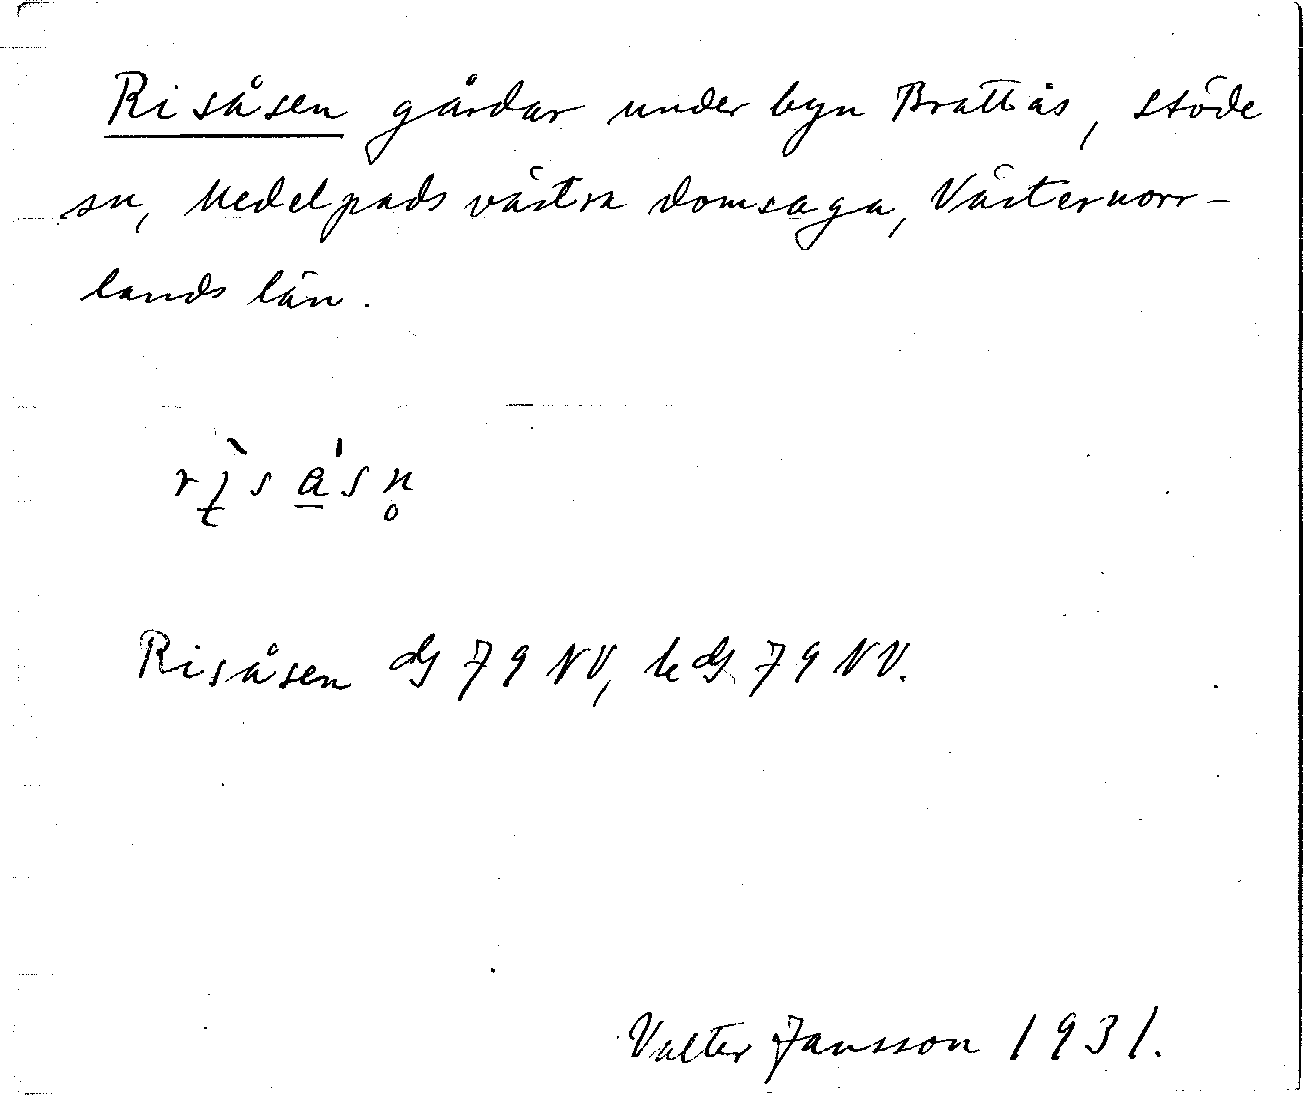 Risåsen gårdar under byn Brattås, Stöde
sn, Medelpads västra domsaga, Västernorr-
lands län.
Risåsen dg 79 NV, k dg 79 NV.
Valter Jansson 1931.